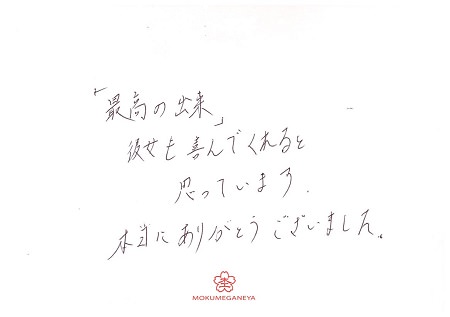 「最高の出来」
彼女も喜んでくれると
思っています.
本当にありがとうございました。
MOKUMEGANEYA